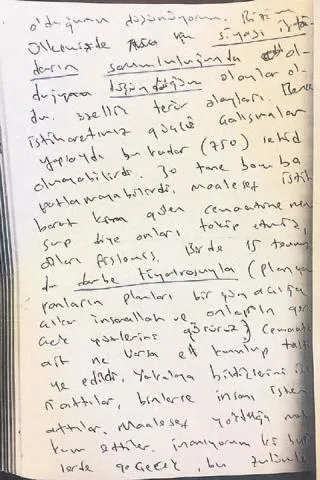 olduğunu düşünüyorum. Bizim
ülkemizde siyasi ikti-
darın sorumluluğunda ol-
duğunu düşündüğüm olaylar ol-
du. özellikle terör olayları. Bence
istihbaratımız güçlü çalışmalar
yapsaydı bu kadar (750) şehid
olmayabilirdi. 30 tane bomba
patlamayabilirdi. maalesef istih
barat kime giden cemaatine men
sup diye onları takip etmiş,
onları fişlemiş. Birde 15 temmuz
da darbe tiyatrosuyla (planya
panların planları bir gün açığa
çıkar inşaallah ve onların ger
çek yüzlerini görürüz) cemaate
ait ne varsa el konulup tasfi
ye edildi. yakalaya bildiklerini içe
ri attılar, binlerce insanı işten
attılar. Maalesef yokluğa mah
kum ettiler. inanıyorum ki bu
lerde geçecek, bu zulümle